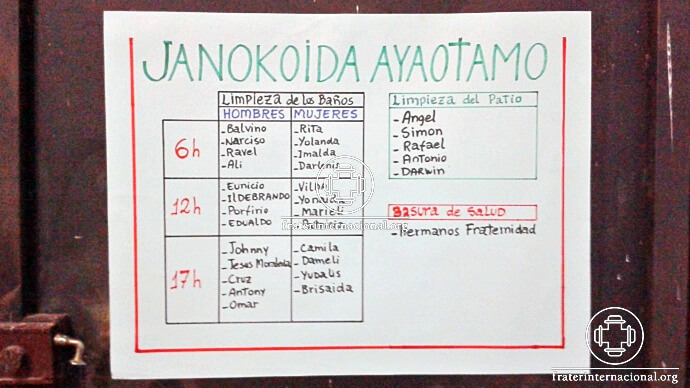 JANOKOIDA AYAOTAMO
Limpieza de los Baños
HOMBRES MUJERES
6h
-Balvino
-Narciso
-Ravel
-Ali
-Rita
-Yolanda
-Imalda
12h
-Eunicio
-ILDEBRANDO
-Porfirio
-EDUALDO
-Marieli
17h
-Johnny
-Cruz
-Antony
-Omar
-Camila
-Dameli
-Yudalis
-Brisaida
Limpieza del Patio
-Angel
-Simon
-Rafael
-Antonio
-DARWIN
Basura de SALUD
-Hermanos Fraternidad
fraterinternacional.org
fraterinternacional.org